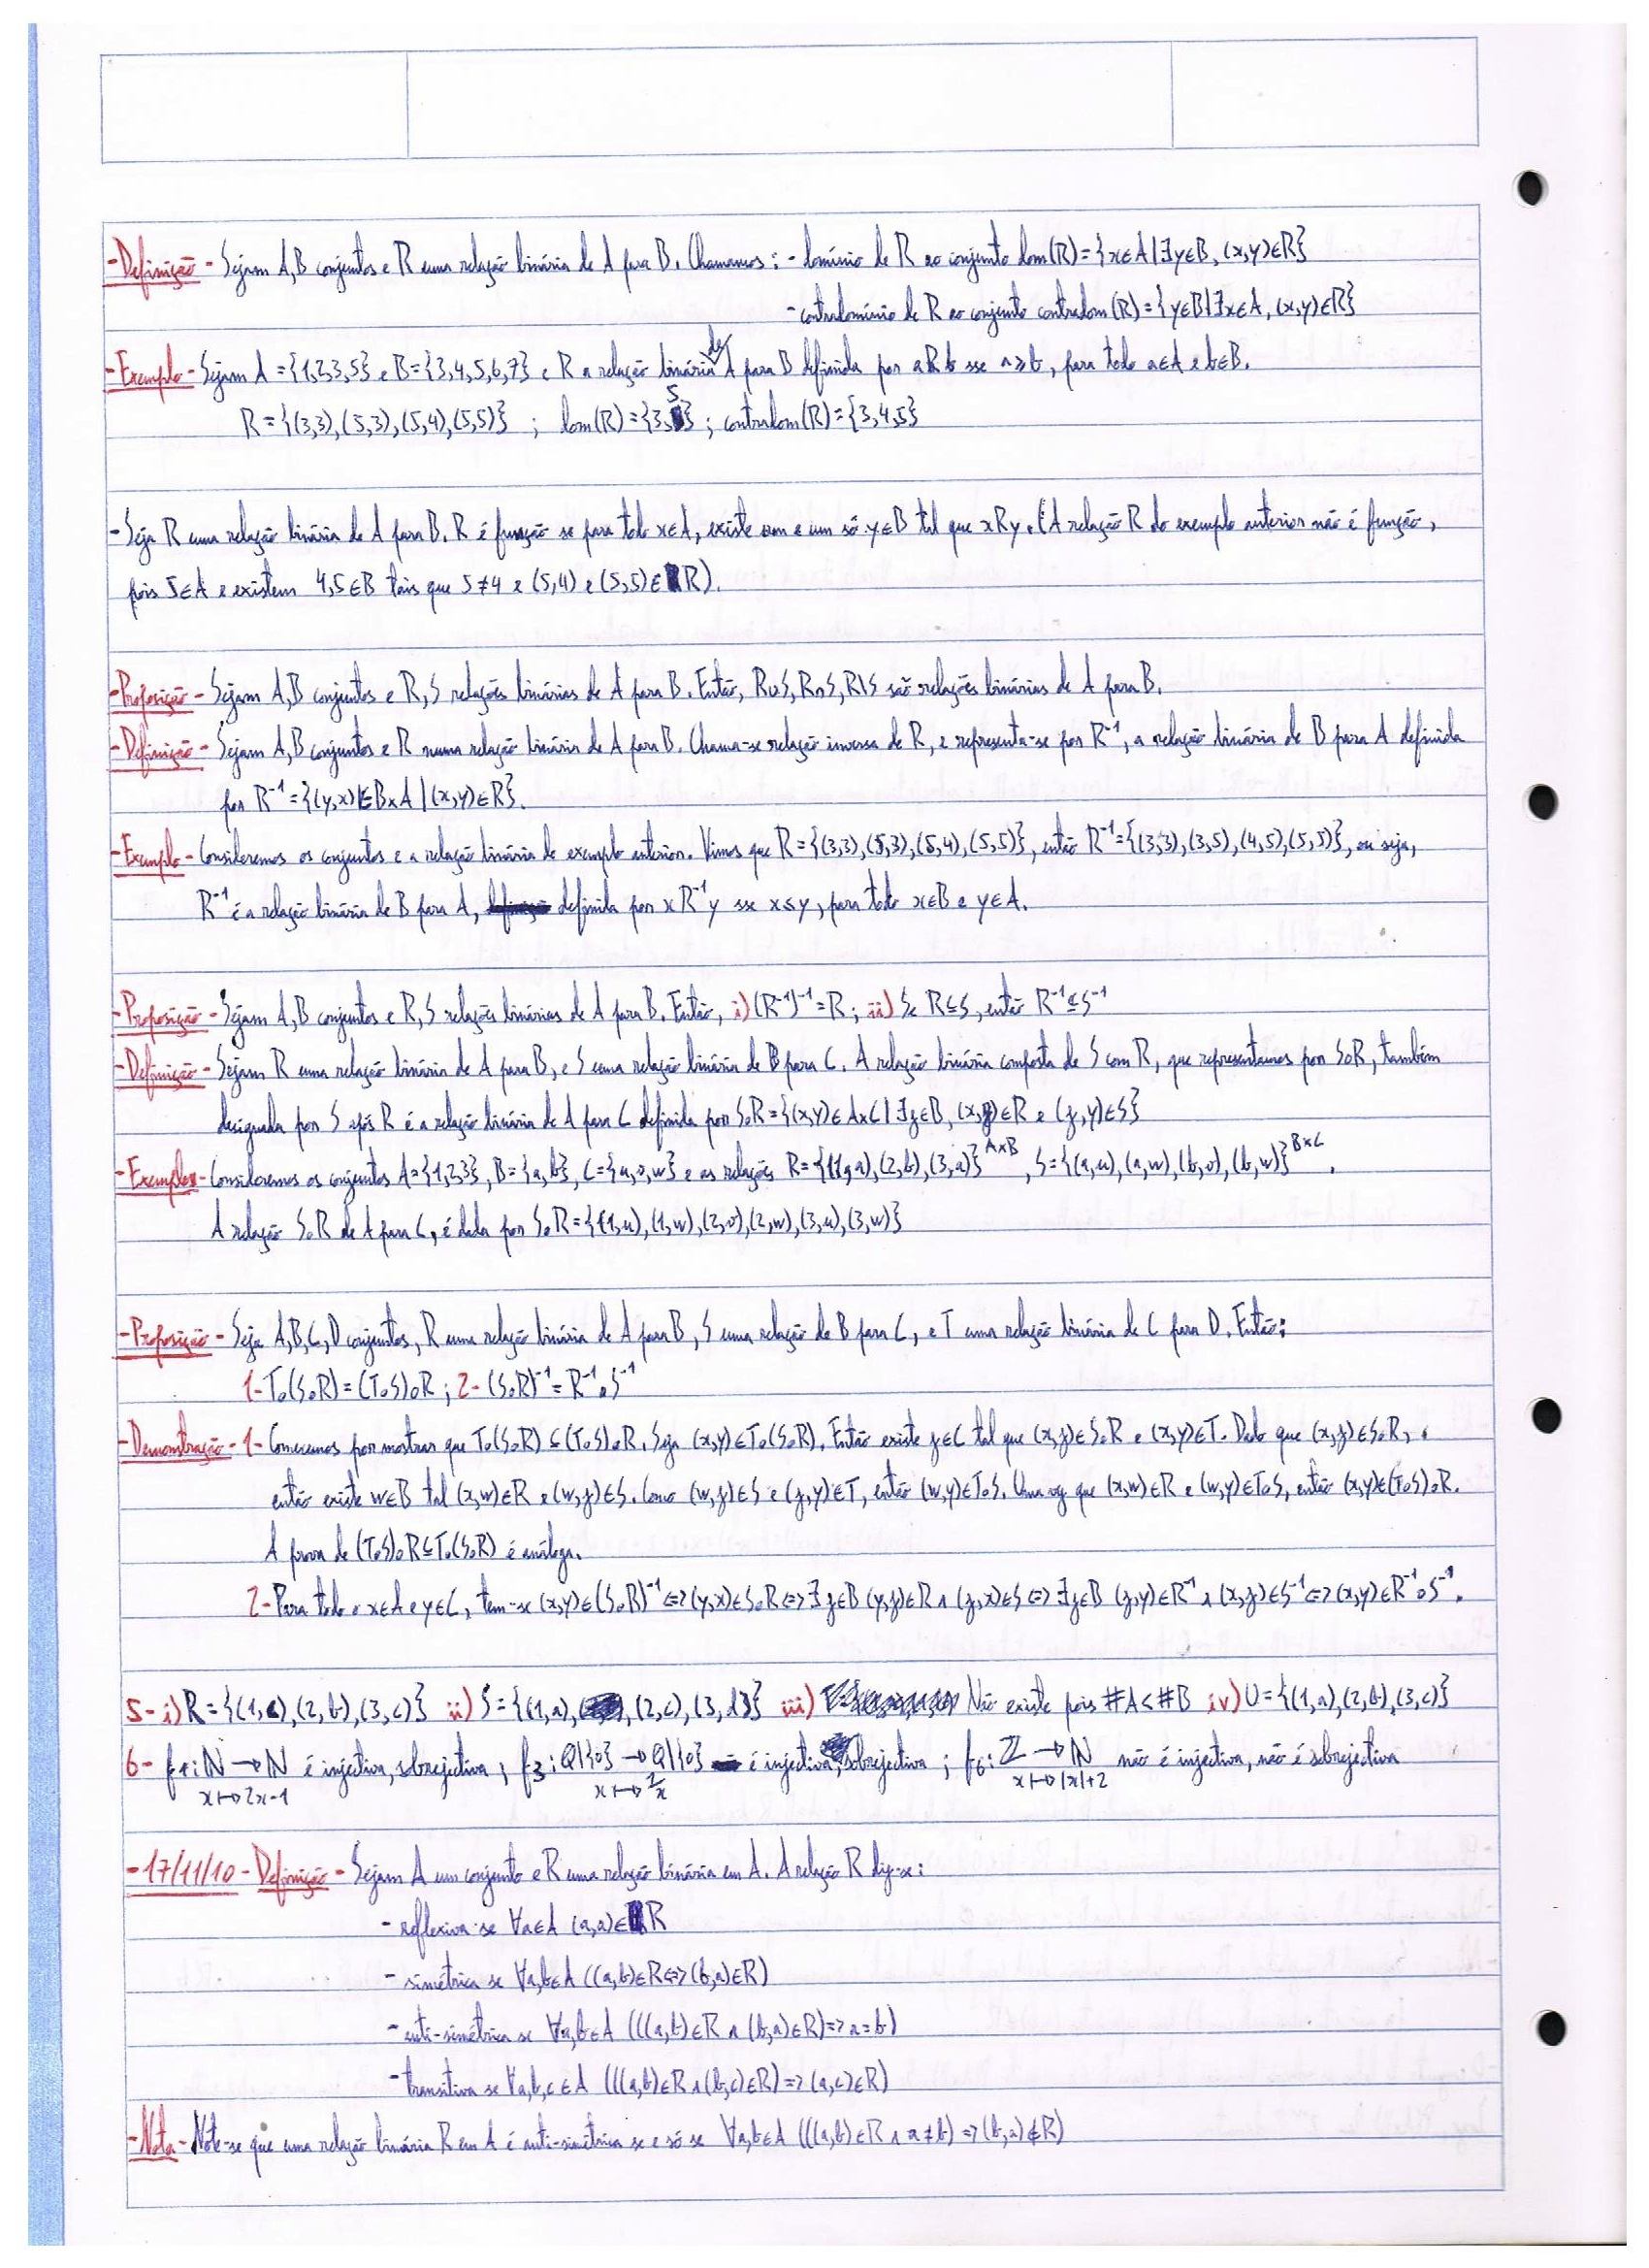 -Definição - Sejam A,B conjuntos e R uma relação binária de A para B. Chamamos: - domínio de R ao conjunto dom(R)={x∈A|∃y∈B, (x,y)∈R}
- contradomínio de R ao conjunto contradom(R)={y∈B|∃x∈A, (x,y)∈R}
-Exemplo - Sejam A={1,2,3,5} e B={3,4,5,6,7} e R a relação binária de A para B definida por aRb sse a≥b, para todo a∈A e b∈B.
R={(3,3),(5,3),(5,4),(5,5)} ; dom(R)={3,5} ; contradom(R)={3,4,5}
-Seja R uma relação binária de A para B. R é função se para todo x∈A, existe um e um só y∈B tal que xRy. (A relação R do exemplo anterior não é função,
pois 5∈A e existem 4,5∈B tais que 5≠4 e (5,4) e (5,5)∈R).
-Proposição - Sejam A,B conjuntos e R,S relações binárias de A para B. Então, R∪S, R∩S, R\S são relações binárias de A para B.
-Definição - Sejam A,B conjuntos e R numa relação binária de A para B. Chama-se relação inversa de R, e representa-se por R⁻¹, a relação binária de B para A definida
por R⁻¹={(y,x)∈B×A|(x,y)∈R}.
-Exemplo - Consideremos os conjuntos e a relação binária do exemplo anterior. Vimos que R={(3,3),(5,3),(5,4),(5,5)}, então R⁻¹={(3,3),(3,5),(4,5),(5,5)}, ou seja,
R⁻¹ é a relação binária de B para A, definida por xR⁻¹y sse x≤y, para todo x∈B e y∈A.
-Proposição - Sejam A,B conjuntos e R,S relações binárias de A para B. Então, i) (R⁻¹)⁻¹=R; ii) Se R⊆S, então R⁻¹⊆S⁻¹
-Definição - Sejam R uma relação binária de A para B, e S uma relação binária de B para C. A relação binária composta de S com R, que representamos por S∘R, também
designada por S após R é a relação binária de A para C definida por S∘R={(x,y)∈A×C|∃z∈B, (x,z)∈R e (z,y)∈S}
-Exemplo - Consideremos os conjuntos A={1,2,3}, B={a,b}, C={u,v,w} e as relações R={(1,a),(2,b),(3,a)}ᴬˣᴮ, S={(a,u),(a,w),(b,v),(b,w)}ᴮˣᶜ.
A relação S∘R de A para C, é dada por S∘R={(1,u),(1,w),(2,v),(2,w),(3,u),(3,w)}
-Proposição - Seja A,B,C,D conjuntos, R uma relação binária de A para B, S uma relação de B para C, e T uma relação binária de C para D. Então:
1- T∘(S∘R)=(T∘S)∘R ; 2- (S∘R)⁻¹=R⁻¹∘S⁻¹
-Demonstração - 1- Comecemos por mostrar que T∘(S∘R)⊆(T∘S)∘R. Seja (x,y)∈T∘(S∘R). Então existe z∈C tal que (x,z)∈S∘R e (x,y)∈T. Dado que (x,z)∈S∘R,
então existe w∈B tal (x,w)∈R e (w,z)∈S. Como (w,z)∈S e (z,y)∈T, então (w,y)∈T∘S. Uma vez que (x,w)∈R e (w,y)∈T∘S, então (x,y)∈(T∘S)∘R.
A prova de (T∘S)∘R⊆T∘(S∘R) é análoga.
2- Para todo x∈A e y∈C, tem-se (x,y)∈(S∘R)⁻¹⇔(y,x)∈S∘R⇔∃z∈B (y,z)∈R∧(z,x)∈S⇔∃z∈B (z,y)∈R⁻¹∧(x,z)∈S⁻¹⇔(x,y)∈R⁻¹∘S⁻¹.
5- i) R={(1,c),(2,b),(3,c)} ii) S={(1,a), (2,c),(3,d)} iii) Não existe pois #A<#B iv) U={(1,a),(2,b),(3,c)}
6- f₁:ℕ→ℕ é injectiva, sobrejectiva; f₃:ℚ\{0}→ℚ\{0} é injectiva, sobrejectiva; f₆:ℤ→ℕ não é injectiva, não é sobrejectiva
x↦2x-1 x↦1/x x↦|x|+2
-17/11/10 - Definição - Sejam A um conjunto e R uma relação binária em A. A relação R diz-se:
- reflexiva se ∀a∈A (a,a)∈R
- simétrica se ∀a,b∈A ((a,b)∈R⇔(b,a)∈R)
- anti-simétrica se ∀a,b∈A (((a,b)∈R∧(b,a)∈R)⇒a=b)
- transitiva se ∀a,b,c∈A (((a,b)∈R∧(b,c)∈R)⇒(a,c)∈R)
-Nota - Note-se que uma relação binária R em A é anti-simétrica se e só se ∀a,b∈A (((a,b)∈R∧a≠b)⇒(b,a)∉R)